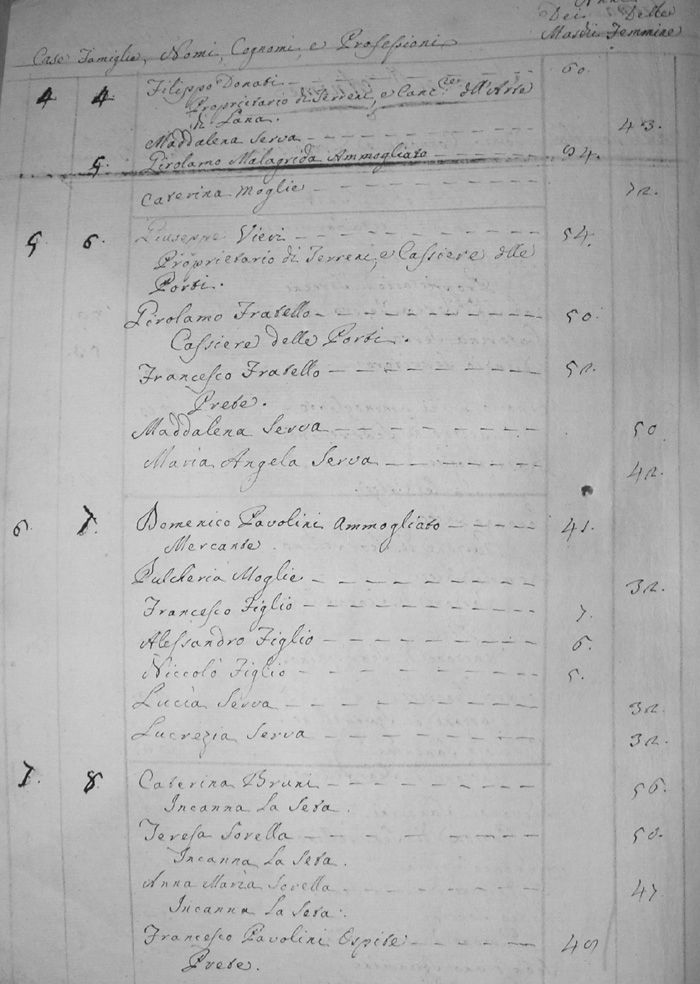 Anni
Dei Delle
Case Famiglie, Nomi, Cognomi, e Professioni Maschi Femmine
4 4 Filippo Donati 60.
Proprietario di Terreni, e Canc.re dell'Arte
di Lana.
Maddalena Serva 43.
5. Girolamo Malagrida Ammogliato 94.
Caterina Moglie 72.
5 6. Giuseppe Vieri 54.
Proprietario di Terreni, e Cassiere delle
Porti.
Girolamo Fratello 50.
Cassiere delle Porti.
Francesco Fratello 52.
Prete.
Maddalena Serva 50
Maria Angela Serva 42.
6. 7. Domenico Pavolini Ammogliato 41.
Mercante.
Pulcheria Moglie 32.
Francesco Figlio 7.
Alessandro Figlio 6.
Niccolò Figlio 5.
Luccia Serva 32.
Lucrezia Serva 32.
7. 8. Caterina Bruni 56.
Incanna La Seta.
Teresa Sorella 50.
Incanna La Seta.
Anna Maria Sorella 47
Incanna La Seta.
Francesco Pavolini Ospite
Prete.